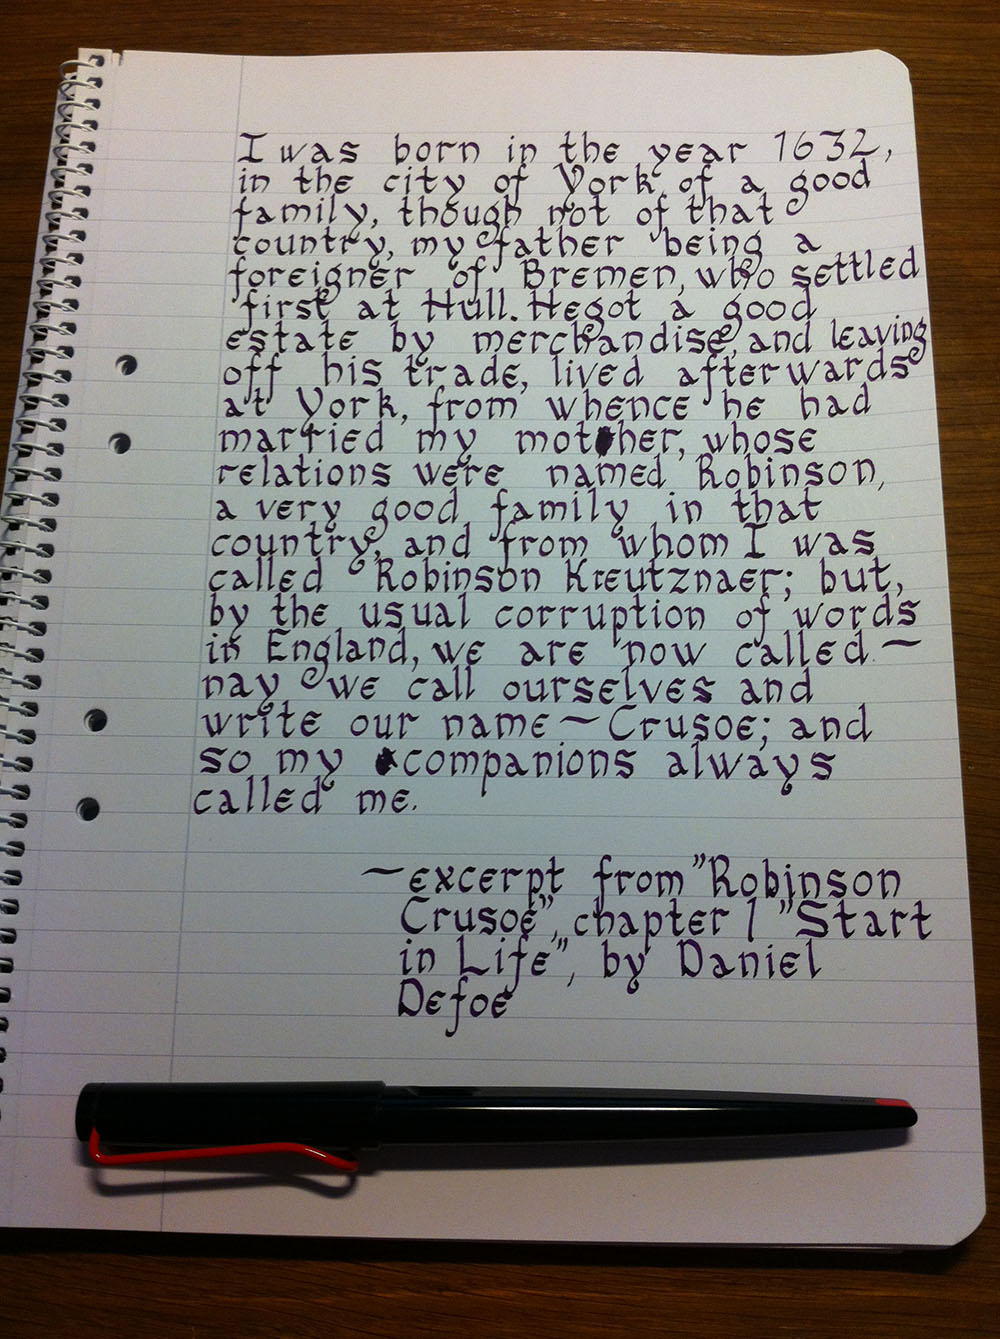 I was born in the year 1632,
in the city of York, of a good
family, though not of that
country, my father being a
foreigner of Bremen, who settled
first at Hull. He got a good
estate by merchandise, and leaving
off his trade, lived afterwards
at York, from whence he had
married my mother, whose
relations were named Robinson,
a very good family in that
country, and from whom I was
called Robinson Kreutznaer; but,
by the usual corruption of words
in England, we are now called –
nay we call ourselves and
write our name – Crusoe; and
so my companions always
called me.
– excerpt from "Robinson
Crusoe", chapter 1 "Start
in Life", by Daniel
Defoe